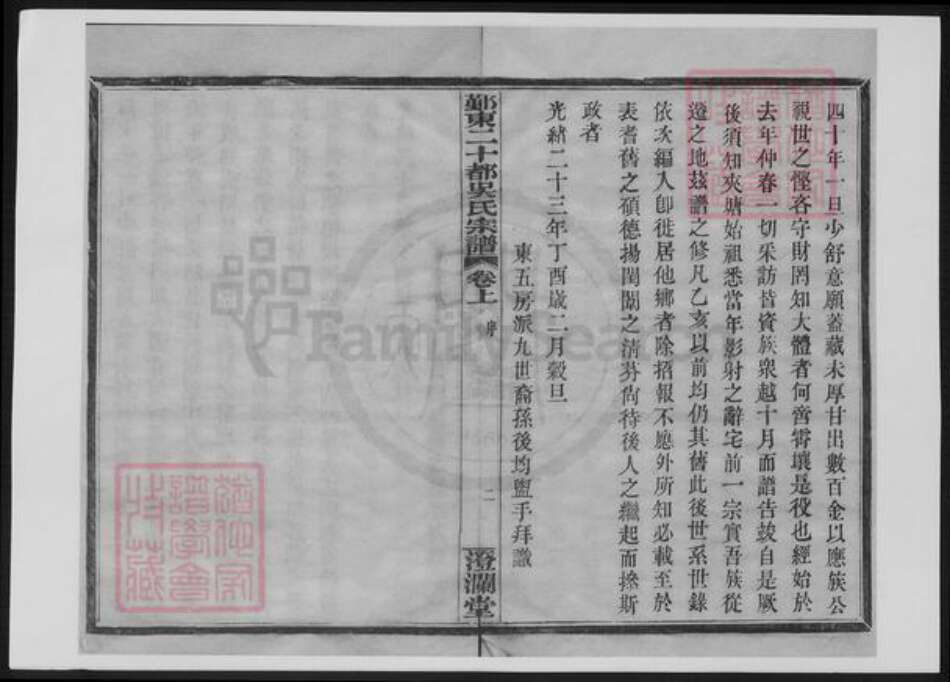 四十年一旦少舒意願蓋藏未厚甘出數百金以應族公
視世之慳吝守財罔知大體者何啻霄壤是役也經始於
去年仲春一切采訪皆資族衆越十月而譜告竣自是厥
後須知夾塘始祖悉當年影射之辭宅前一宗實吾族從
遷之地茲譜之修凡乙亥以前均仍其舊此後世系世錄
依次編入卽徙居他鄉者除招報不應外所知必載至於
表耆舊之碩德揚閨閫之清芬尚待後人之繼起而操斯
政者
光緒二十三年丁酉歲二月穀旦
東五房派九世裔孫後均盥手拜識
鄞東二十都吳氏宗譜 卷上 序 二 澄瀾堂
譜學會
特藏
FamilySearch